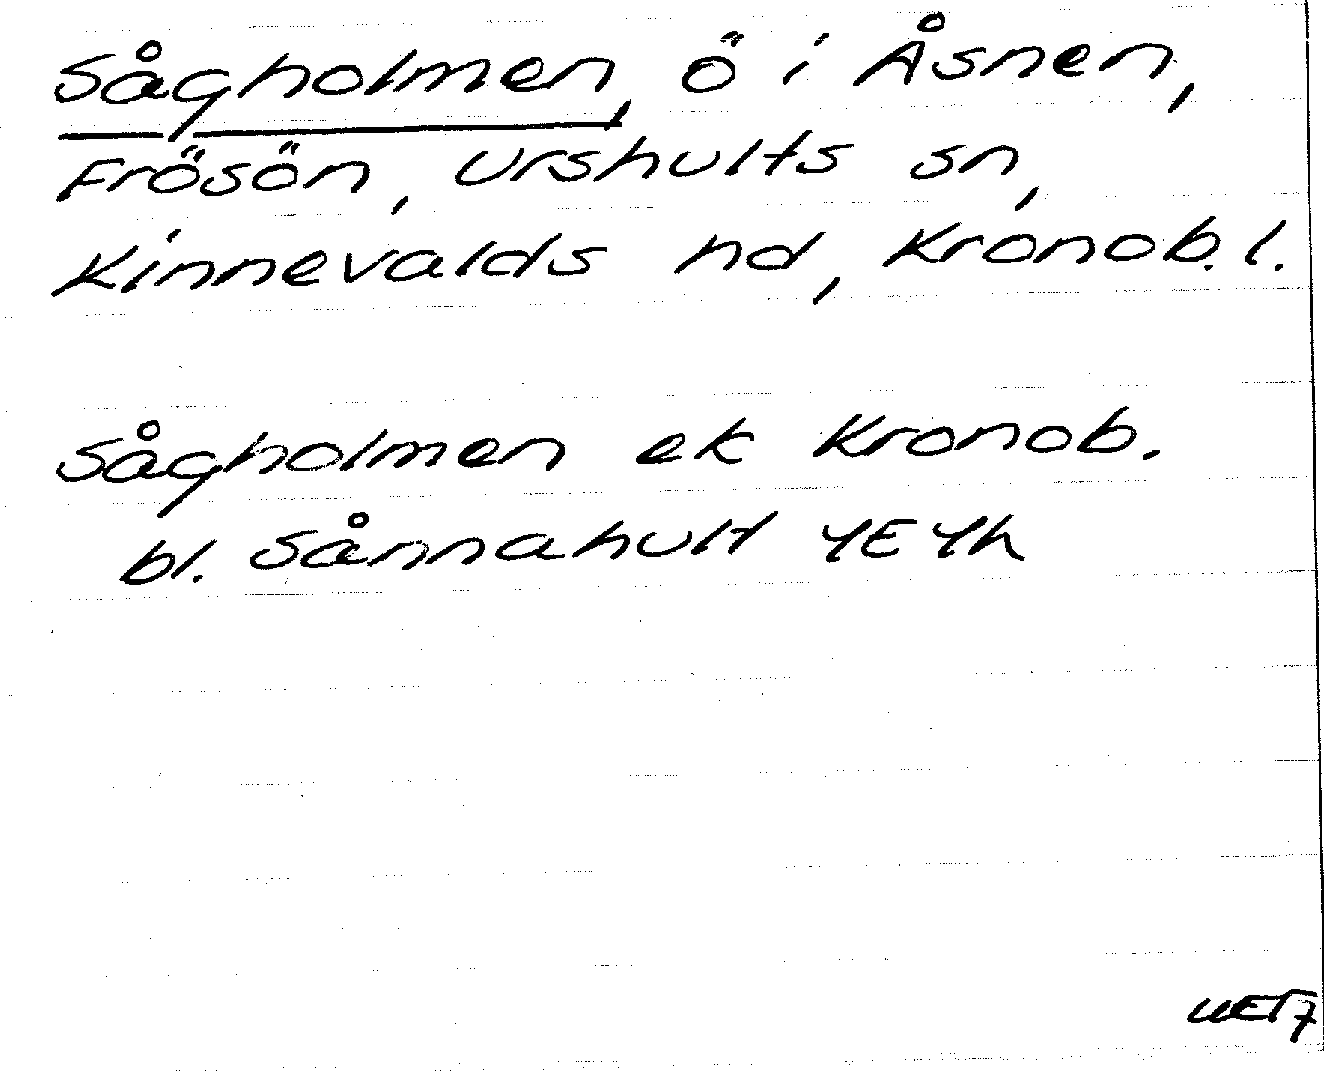 Sågholmen, ö i Åsnen,
Frösön, Urshults sn,
Kinnevalds hd, Kronob. l.
Sågholmen ek Kronob.
bl. Sånnahult 4E4h